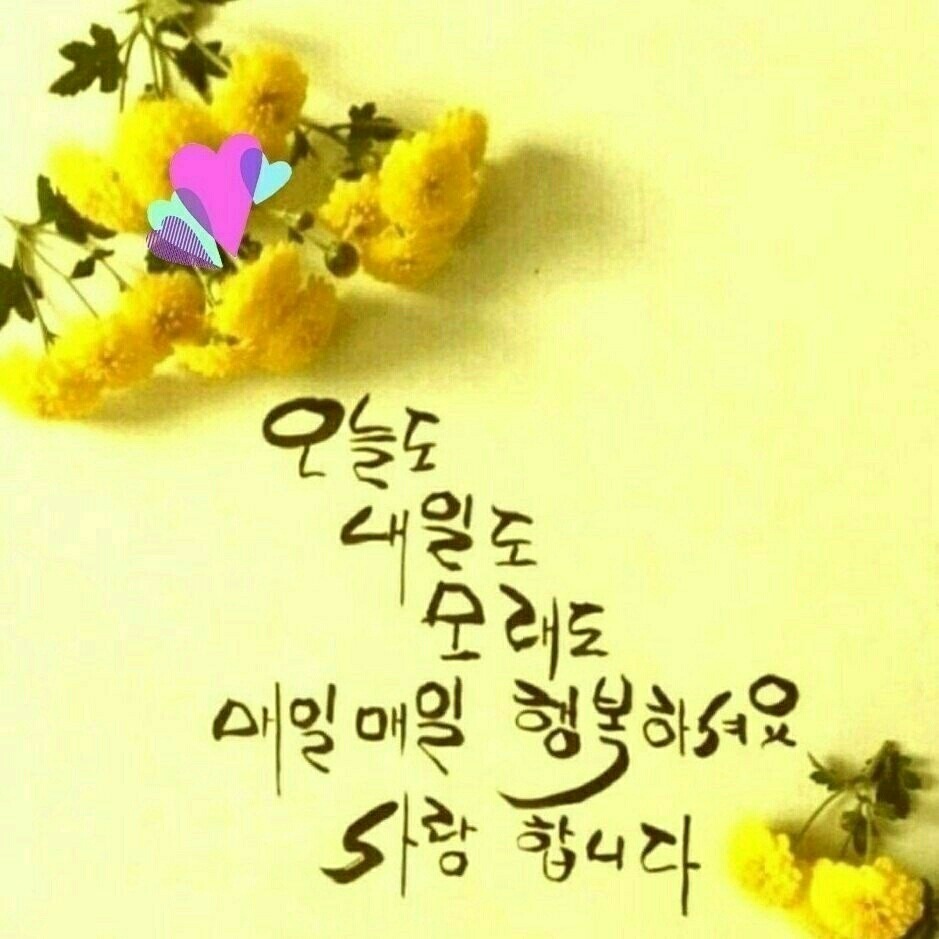 오늘도
내일도
모래도
매일매일 행복하셔요
사랑합니다